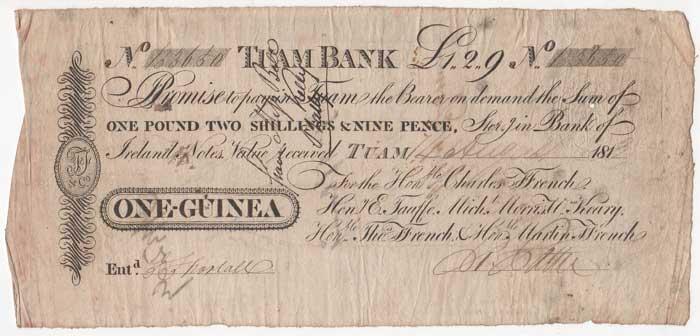 No. TUAM BANK £1..2..9 No.
I Promise to pay at Tuam the Bearer on demand the Sum of
ONE POUND TWO SHILLINGS & NINE PENCE, Ster.g in Bank of
Ireland Notes, Value received TUAM 181
For the Hon.ble Charles Ffrench
ONE-GUINEA
Hon.ble E. Taaffe, Mich.l Morris, W. Keary,
Hon.ble Tho.s Ffrench, & Hon.ble Martin Ffrench
Ent.d
& Co.